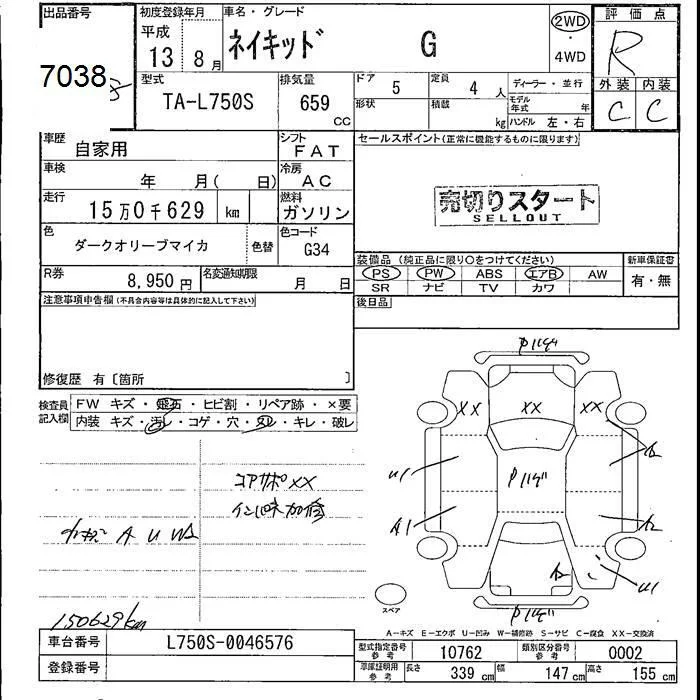 出品番号 初度登録年月 車名・グレード 評価点
7038 平成 13 8月 ネイキッド G 2WD 4WD R
型式 TA-L750S 排気量 659 CC
ドア 5 定員 4人 ディーラー・並行
形状 積載 kg モデル年式 年 ハンドル 左・右
外装 内装
C C
車歴 自家用 シフト FAT
セールスポイント(正常に機能するものに限ります)
車検 年 月( 日) 冷房 AC
走行 15万0千629 km 燃料 ガソリン
売切りスタート
SELLOUT
色 ダークオリーブマイカ 色替 色コード G34
装備品(純正品に限り○をつけてください) 新車保証書
R券 8,950円 名変通知期限 月 日
PS PW ABS エアB AW 有・無
SR ナビ TV カワ
注意事項申告欄(不具合内容等は具体的に記入して下さい)
後日品
修復歴 有〔箇所 〕
検査員記入欄 FW キズ・飛石・ヒビ割・リペア跡・×要
内装 キズ・汚レ・コゲ・穴・スレ・キレ・破レ
コアサポXX
A U W2
150629km
XX XX XX
U1
A1
U1
スペア
A-キズ E-エクボ U-凹み W-補修跡 S-サビ C-腐食 XX-交換済
車台番号 L750S-0046576
登録番号
型式指定番号 参考 10762 類別区分番号 参考 0002
車庫証明用 参考 長さ 339 cm 幅 147 cm 高さ 155 cm